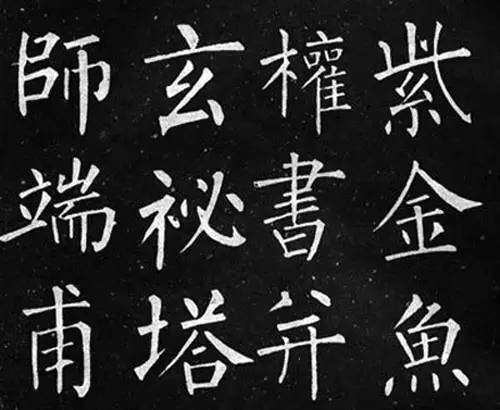 紫金魚
權書并
玄祕塔
師端甫